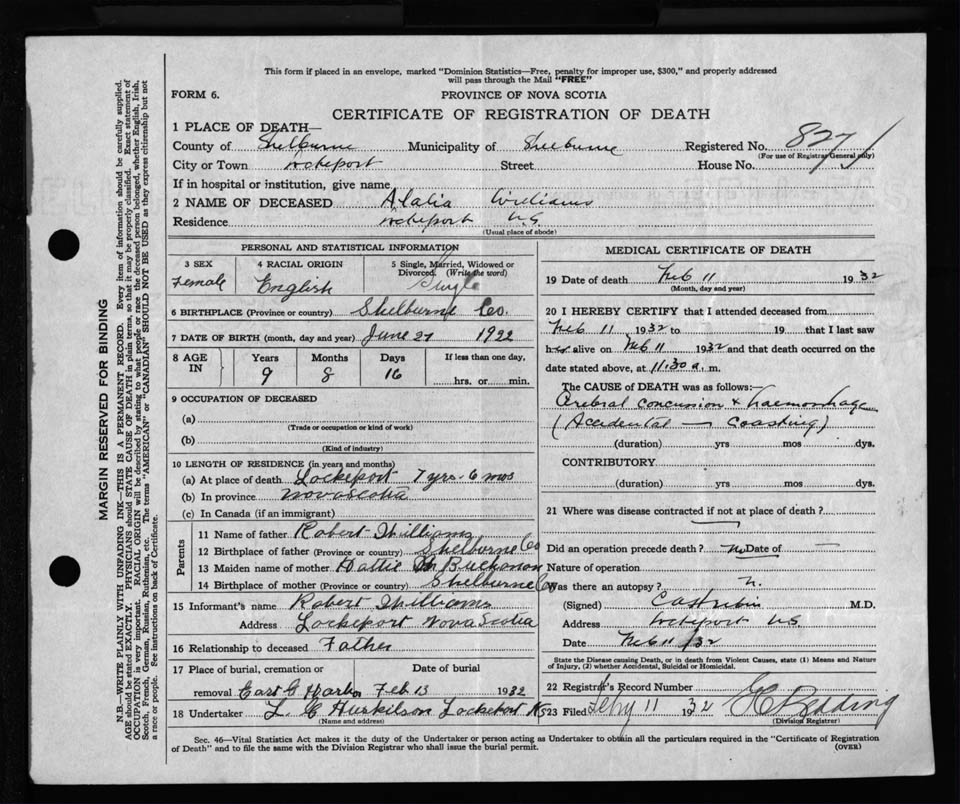 This form if placed in an envelope, marked "Dominion Statistics—Free, penalty for improper use, $300," and properly addressed
will pass through the Mail "FREE"
FORM 6.
PROVINCE OF NOVA SCOTIA
CERTIFICATE OF REGISTRATION OF DEATH
1 PLACE OF DEATH—
County of Shelburne Municipality of Shelburne Registered No. 827
(For use of Registrar General only)
City or Town Lockeport Street House No.
If in hospital or institution, give name
2 NAME OF DECEASED Alalia Williams
Residence Lockeport N.S.
(Usual place of abode)
PERSONAL AND STATISTICAL INFORMATION
3 SEX 4 RACIAL ORIGIN 5 Single, Married, Widowed or
Divorced. (Write the word)
Female English Single
6 BIRTHPLACE (Province or country) Shelburne Co.
7 DATE OF BIRTH (month, day and year) June 27 1922
8 AGE IN Years Months Days If less than one day,
9 8 16 hrs. or min.
9 OCCUPATION OF DECEASED
(a)
(Trade or occupation or kind of work)
(b)
(Kind of industry)
10 LENGTH OF RESIDENCE (in years and months)
(a) At place of death Lockeport 7 yrs - 6 mos
(b) In province Nova Scotia
(c) In Canada (if an immigrant)
Parents
11 Name of father Robert Williams
12 Birthplace of father (Province or country) Shelburne Co
13 Maiden name of mother Hattie Buchanan
14 Birthplace of mother (Province or country) Shelburne Co
15 Informant's name Robert Williams
Address Lockeport Nova Scotia
16 Relationship to deceased Father
17 Place of burial, cremation or Date of burial
removal East Harbor Feb 13 1932
18 Undertaker L. C Huskilson Lockeport NS
(Name and address)
MEDICAL CERTIFICATE OF DEATH
19 Date of death Feb 11 1932
(Month, day and year)
20 I HEREBY CERTIFY that I attended deceased from
Feb 11, 1932 to 19 that I last saw
her alive on Feb 11 1932 and that death occurred on the
date stated above, at 11.30 a. m.
The CAUSE of DEATH was as follows:
Cerebral concussion & haemorrhage
(Accidental — Coasting)
(duration) yrs mos dys.
CONTRIBUTORY
(duration) yrs mos dys.
21 Where was disease contracted if not at place of death?
Did an operation precede death? no Date of —
Nature of operation
Was there an autopsy? N.
(Signed) M.D.
Address Lockeport NS
Date Feb 11/32
State the Disease causing Death, or in death from Violent Causes, state (1) Means and Nature
of Injury, (2) whether Accidental, Suicidal or Homicidal.
22 Registrar's Record Number
23 Filed Feby 11 1932 Redding
(Division Registrar)
Sec. 46—Vital Statistics Act makes it the duty of the Undertaker or person acting as Undertaker to obtain all the particulars required in the "Certificate of Registration
of Death" and to file the same with the Division Registrar who shall issue the burial permit.
(OVER)
MARGIN RESERVED FOR BINDING
N.B.—WRITE PLAINLY WITH UNFADING INK—THIS IS A PERMANENT RECORD. Every item of information should be carefully supplied.
AGE should be stated EXACTLY. PHYSICIANS should STATE CAUSE OF DEATH in plain terms, so that it may be properly classified. Exact statement of
OCCUPATION is very important. RACIAL ORIGIN will be described by stating to what people or race the deceased person belonged, whether English, Irish,
Scotch, French, German, Russian, Ruthenian, etc. The terms "AMERICAN" or "CANADIAN" SHOULD NOT BE USED as they express citizenship but not
a race or people. See instructions on back of Certificate.